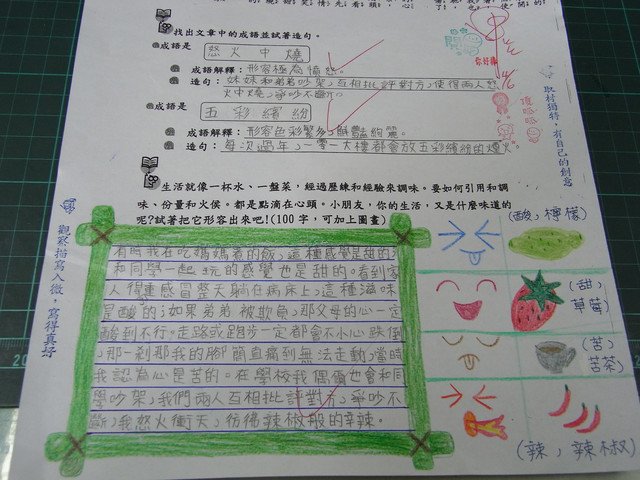 找出文章中的成語並試著造句。
成語是 怒火中燒
成語解釋：形容極為憤怒。
造句：妹妹和弟弟吵架，互相批評對方，使得兩人怒
火中燒，爭吵不斷。
成語是 五彩繽紛
成語解釋：形容色彩繁多，鮮豔絢麗。
造句：每次過年，一零一大樓都會放五彩繽紛的煙火。
你好棒
頂呱呱
取材獨特，有自己的創意
生活就像一杯水、一盤菜，經過歷練和經驗來調味。要如何引用和調
味、份量和火侯。都是點滴在心頭。小朋友，你的生活，又是什麼味道的
呢?試著把它形容出來吧!(100字，可加上圖畫)
觀察描寫入微，寫得真好
有時我在吃媽媽煮的飯，這種感覺是甜的，
和同學一起玩的感覺也是甜的。看到家
人得重感冒整天躺在病床上，這種滋味
是酸的；如果弟弟被欺負，那父母的心一定
酸到不行。走路或跑步一定都會不小心跌倒
，那一剎那我的腳簡直痛到無法走動，當時
我認為心是苦的。在學校我偶爾也會和同
學吵架，我們兩人互相批評對方，爭吵不
斷，我怒火衝天，彷彿辣椒般的辛辣。
(酸，檸檬)
(甜，
草莓)
(苦，
苦茶)
(辣，辣椒)